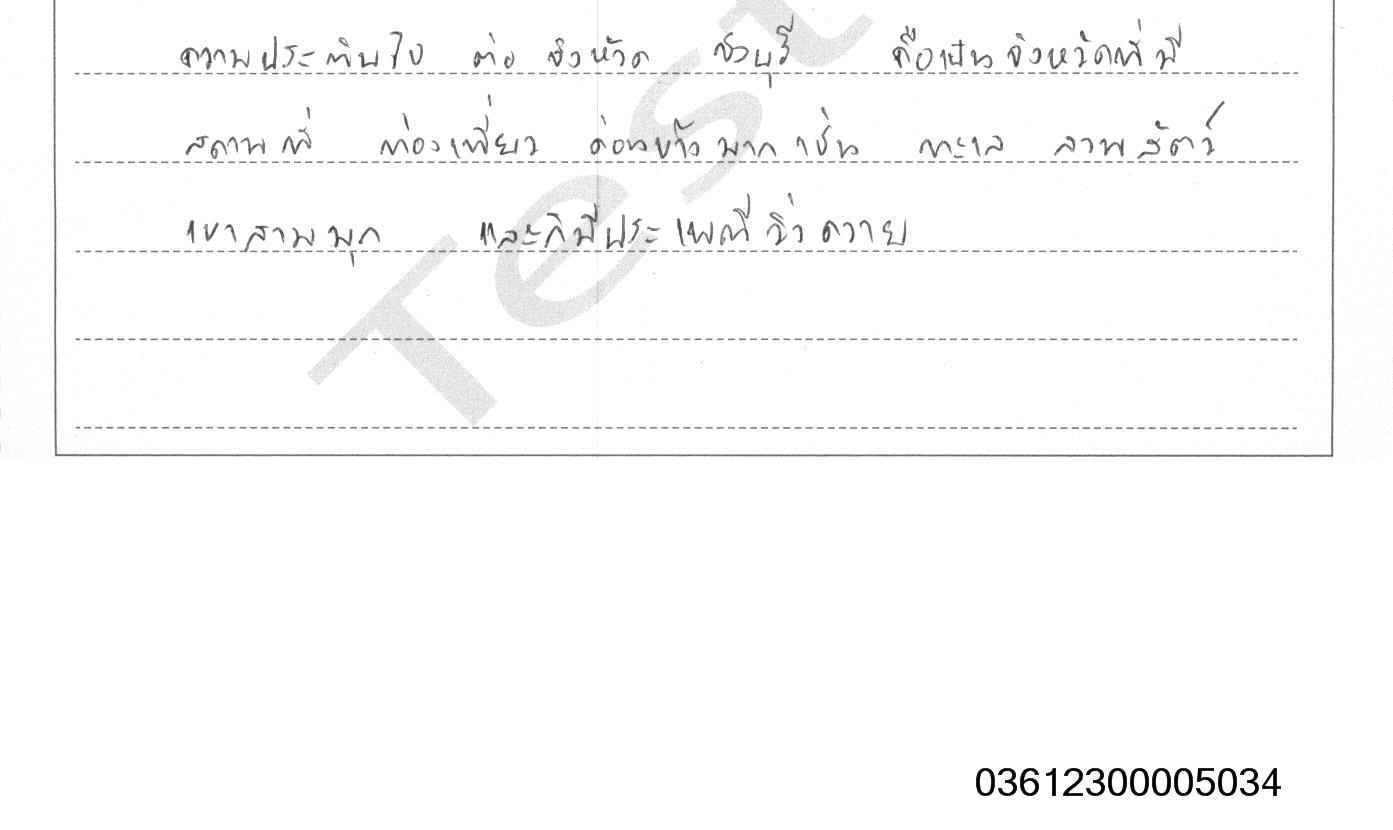 ความประทับใจ ต่อ จังหวัด ชลบุรี คือเป็นจังหวัดที่มี
สถานที่ ท่องเที่ยว ค่อนข้างมาก เช่น ทะเล สวนสัตว์
เขาสามมุก และก็มีประเพณีวิ่งควาย
Test
03612300005034